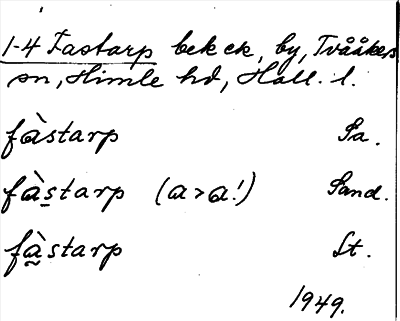 1-4 Fastarp bekck, by, Tvååkers
sn, Himle hd, Hall. l.
fàstarp Pa.
fàs̲tarp (a>a!) Sand.
fà̰starp Lt.
1949.